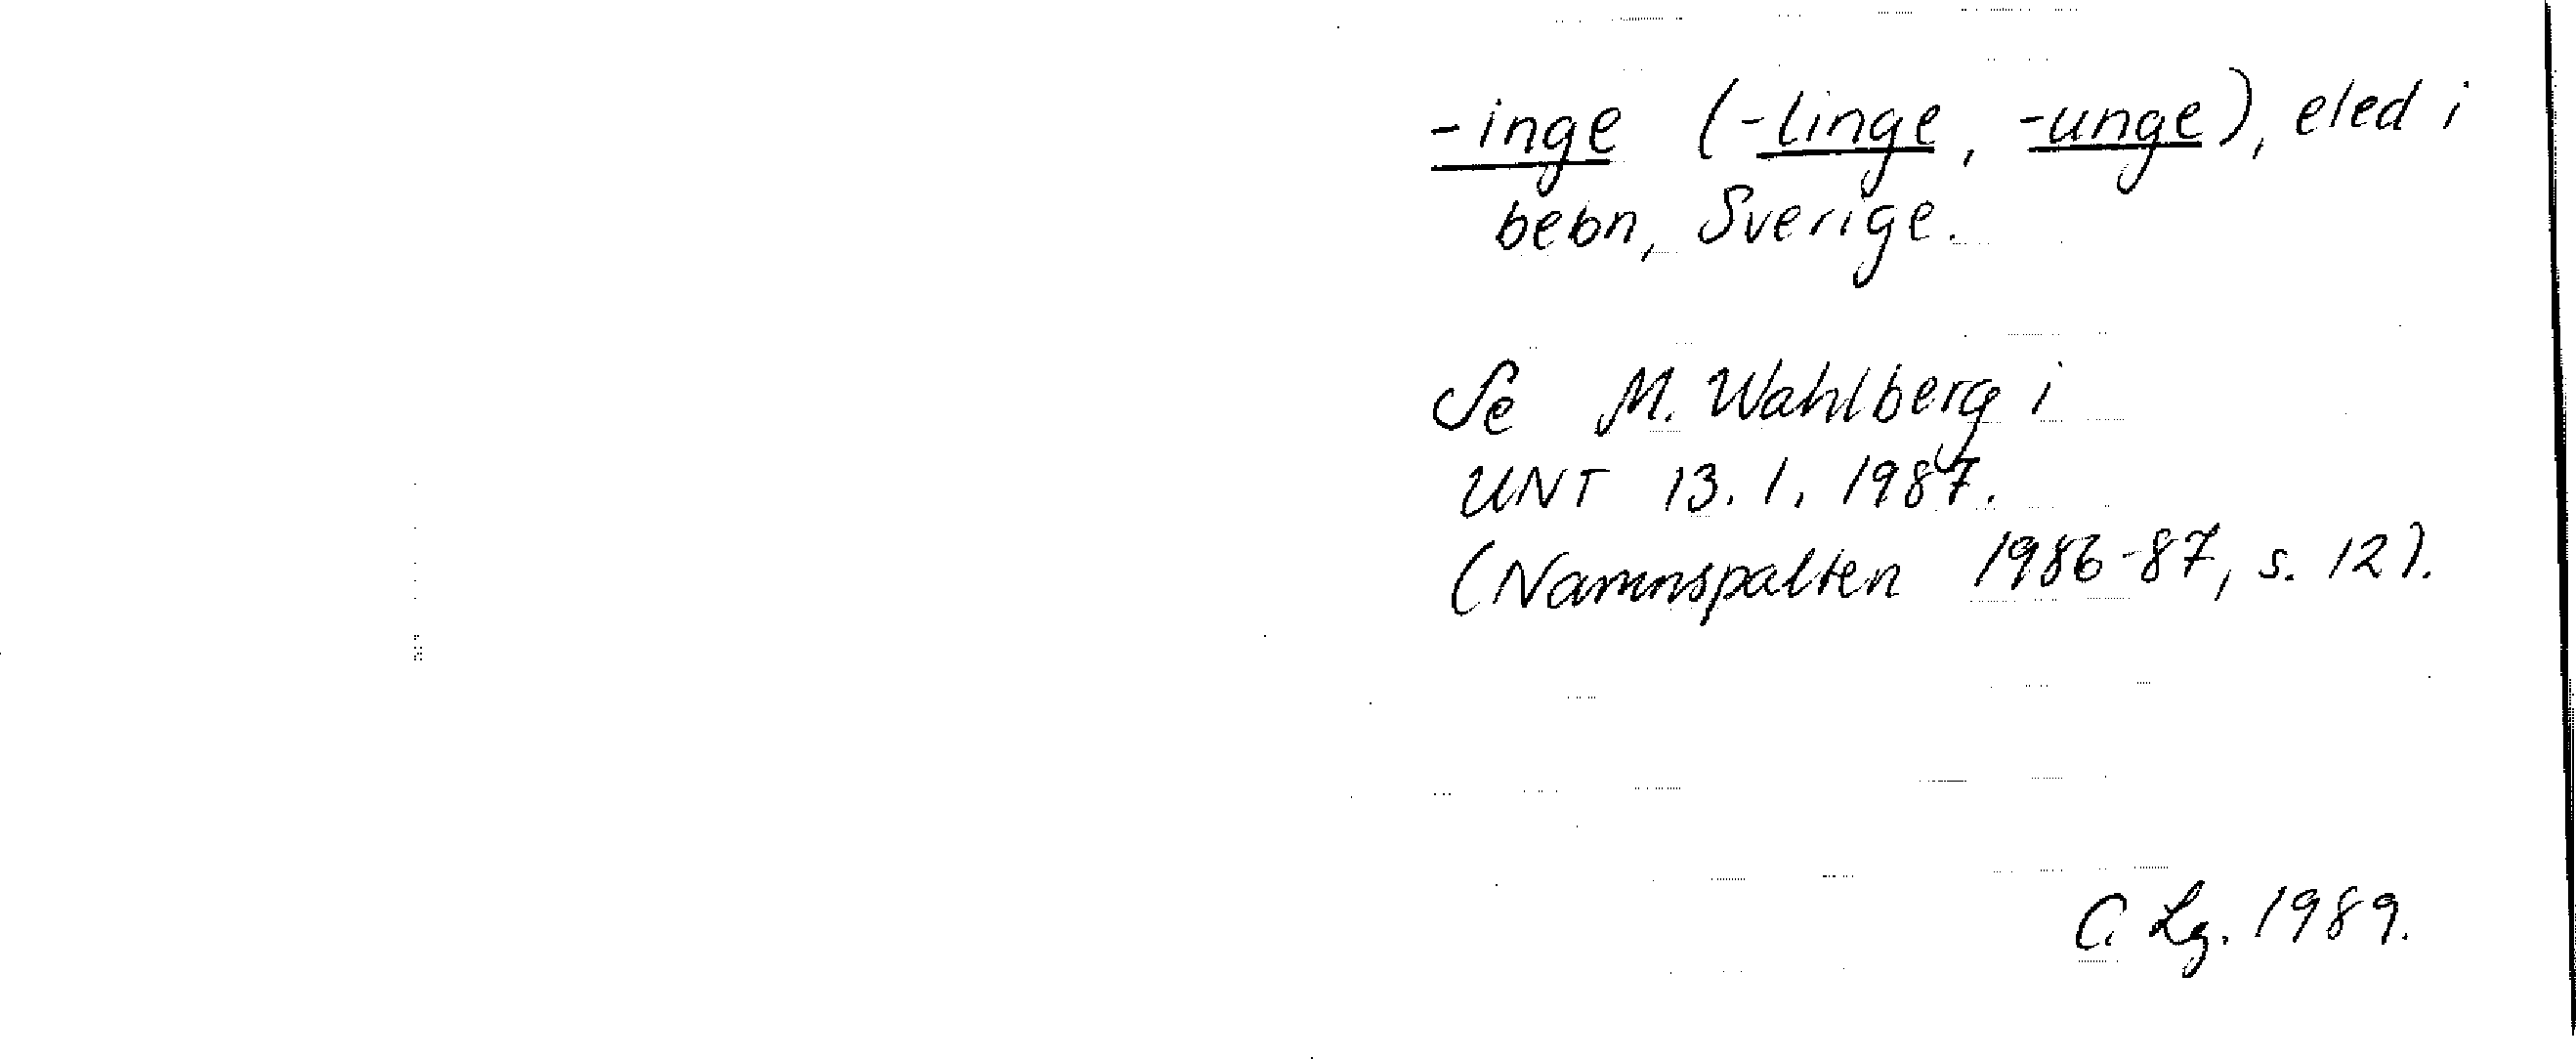 -inge (-linge, -unge), eled i
bebn, Sverige.
Se M. Wahlberg i
UNT 13.1.1987.
(Namnspalten 1986-87, s. 12).
C. Lg. 1989.